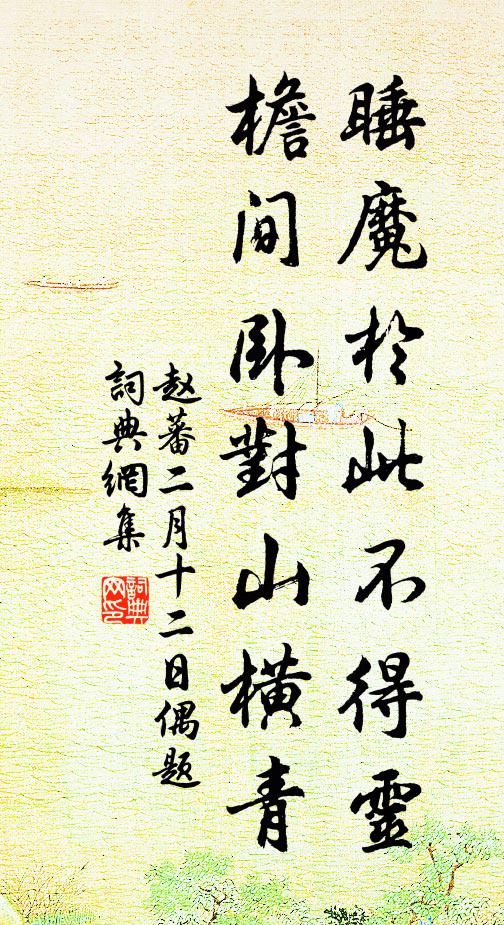 睡魔於此不得靈
檐間臥對山橫青
赵蕃二月十二日偶题
詞典網集
詞典
网印